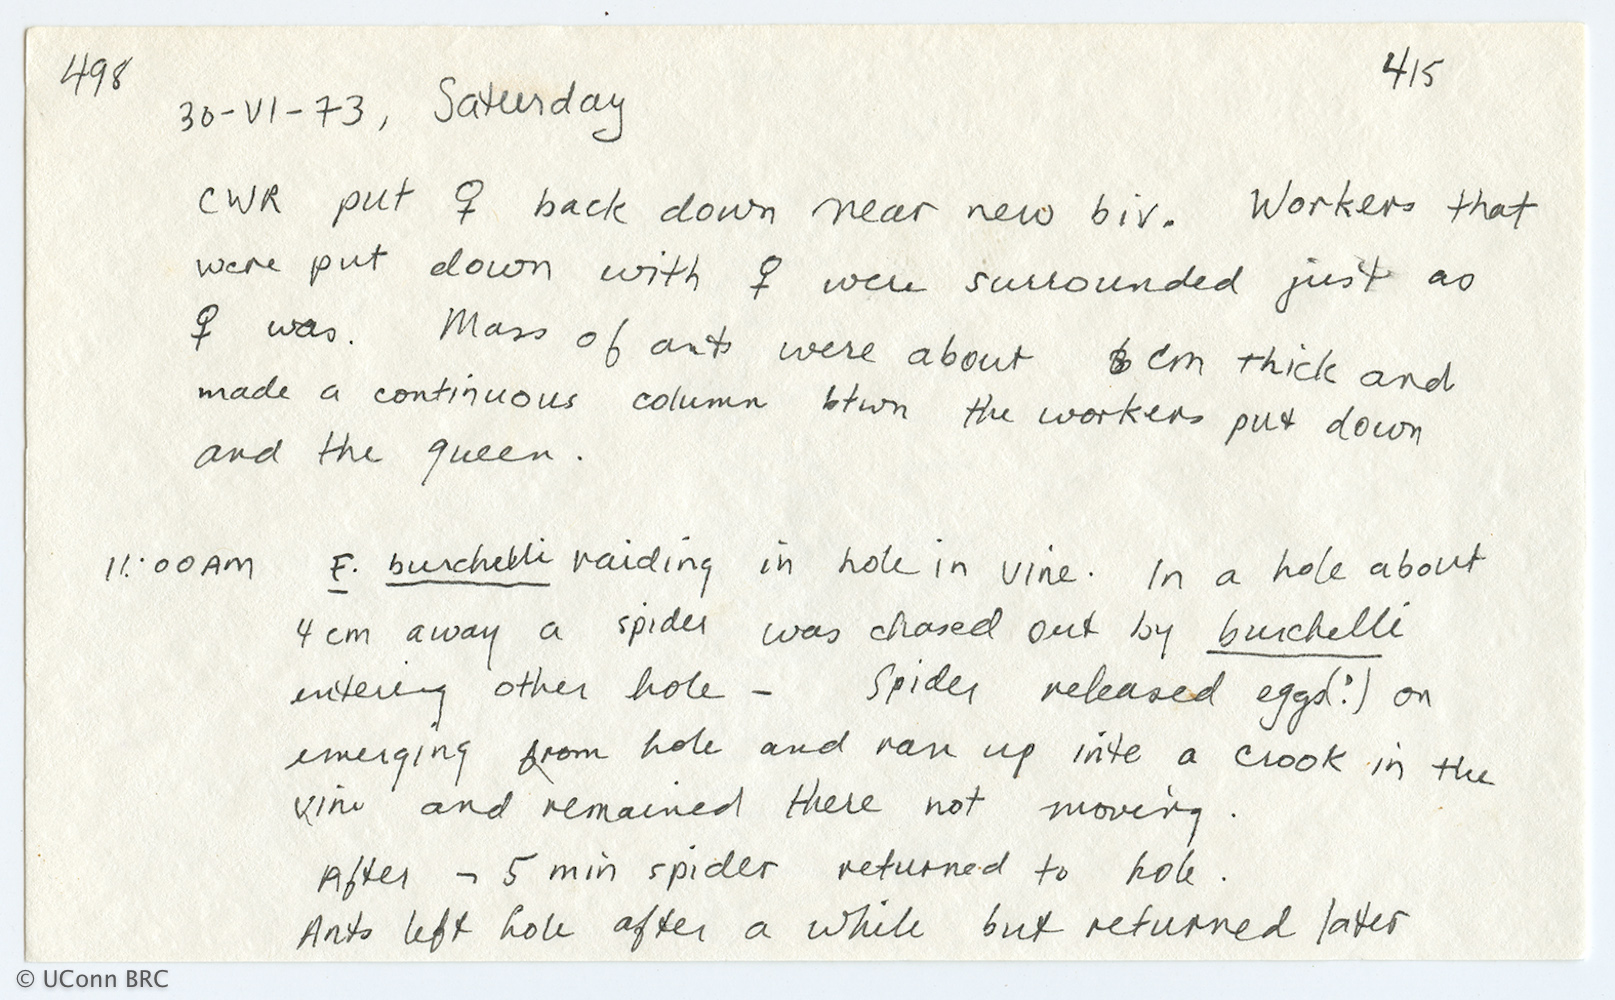 498
415
30-VI-73, Saturday
CWR put ♀ back down near new biv. Workers that
were put down with ♀ were surrounded just as
♀ was. Mass of ants were about cm thick and
made a continuous column btwn the workers put down
and the queen.
11:00AM E. burchelli raiding in hole in vine. In a hole about
4 cm away a spider was chased out by burchelli
entering other hole - Spider released eggs(?) on
emerging from hole and ran up into a crook in the
vine and remained there not moving.
After ~ 5 min spider returned to hole.
Ants left hole after a while but returned later
© UConn BRC